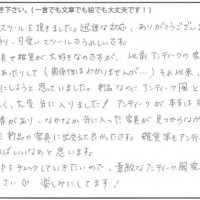 き下さい。(一言でも文章でも絵でも大丈夫です！)
スツールを頂きました。迅速な対応、ありがとうござい
り、可愛いスツールでうれしいです。
具や雑貨が大好きなのですが、以前アンティークの
あったりして(関係性はわかりませんが…)それ以来、
にしようと思っていました。新品なのにアンティーク風と
く、大変気に入りました！アンティークが本当は
があり、なかなか気に入った家具が見つからなか
に新品の家具に出会えてうれしいです。雑貨等もアンティ
ばいいなぁと思います。
Pをチェックしていきたいので、素敵なアンティーク風家
さい♡ 楽しみにしてます！